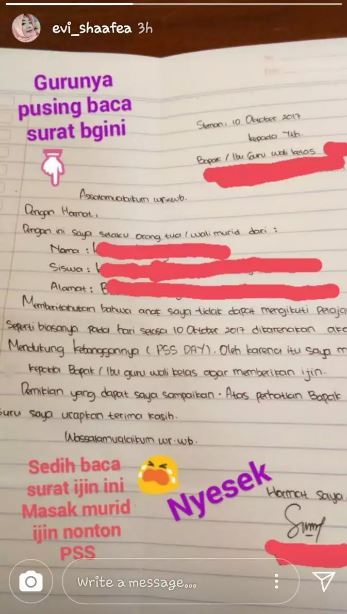 evi_shaafea 3h
Gurunya
pusing baca
surat bgini
Sleman, 10 Oktober 2017
kepada Yth.
Bapak / Ibu Guru wali kelas
Assalamualaikum wr.wb.
Dengan Hormat,
Dengan ini saya selaku orang tua / wali murid dari :
Nama :
Siswa :
Alamat : B
Memberitahukan bahwa anak saya tidak dapat mengikuti
Seperti biasanya pada hari selasa 10 Oktober 2017 dikarenakan
Mendukung ketanggannya (PSS DAY). Oleh karena itu saya m
kepada Bapak / Ibu guru wali kelas agar memberikan ijin.
Demikian yang dapat saya sampaikan. Atas perhatian Bapak
Guru saya ucapkan terima kasih.
Wassalamualaikum wr.wb.
Sedih baca
surat ijin ini
Masak murid
ijin nonton
PSS
Nyesek
Hormat Saya
Write a message...